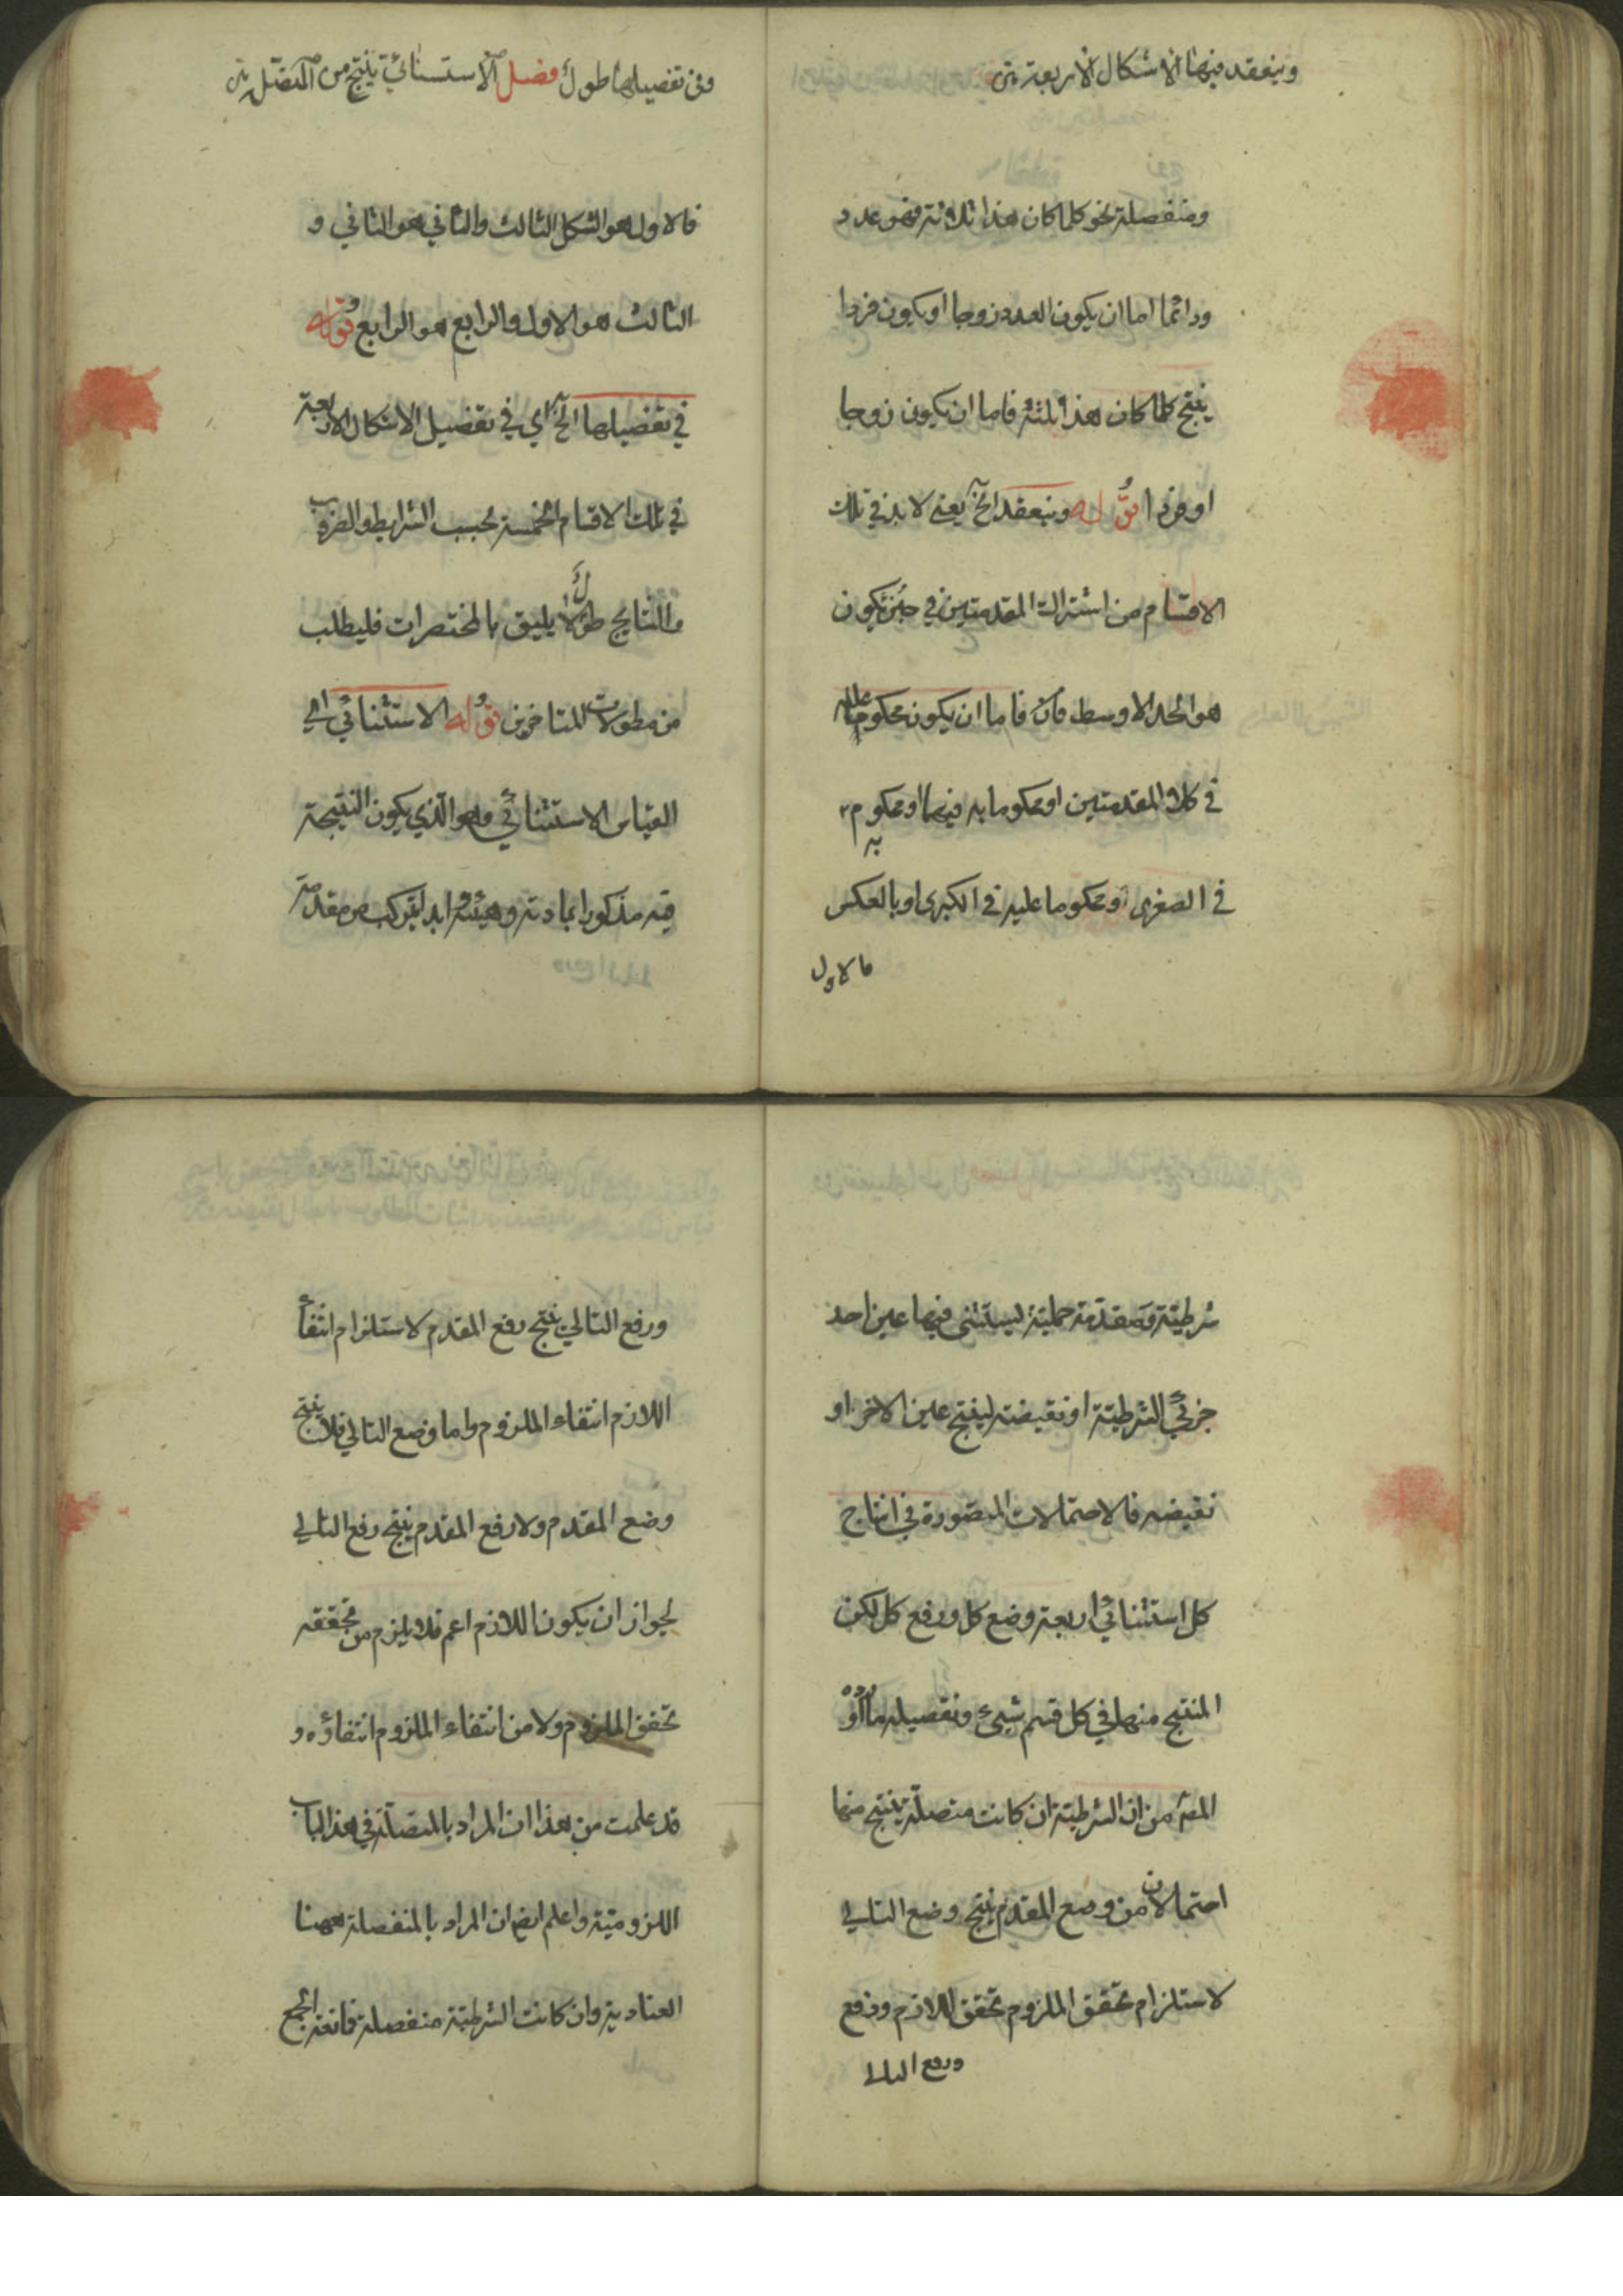 وينعقد فيها الاشكال الاربعة
ومنفصلة نحو كلما كان هذا ثلاثة فهو عدد
ودائما اما ان يكون العدد زوجا او يكون فردا
ينتج كلما كان هذا ثلثة فاما ان يكون زوجا
او فردا قوله وينعقد الخ يعني لا بد في تلك
الاقسام من اشتراك المقدمتين في جزء يكون
هو الحد الاوسط فاما ان يكون محكوما عليه
في كلا المقدمتين او محكوما به فيهما او محكوما
به
في الصغرى ومحكوما عليه في الكبرى او بالعكس
فالاول
وفي تفصيلها طول فصل الاستثنائي ينتج من المتصلة
فالاول هو الشكل الثالث والثاني هو الثاني و
الثالث هو الاول والرابع هو الرابع قوله
في تفصيلها الخ اي في تفصيل الاشكال الاربعة
في تلك الاقسام الخمسة بحسب الشرايط والضروب
والنتايج طول لا يليق بالمختصرات فليطلب
من مطولات المتاخرين قوله الاستثنائي الخ
القياس الاستثنائي وهو الذي يكون النتيجة
فيه مذكورا بمادته وهيئته ابدا يتركب من مقدمة
شرطية ومقدمة حملية ليستثنى فيها عين احد
جزئي الشرطية او نقيضه لينتج عين الاخر او
نقيضه فالاحتمالات المتصورة في انتاج
كل استثنائي اربعة وضع كل ورفع كل لكن
المنتج منها في كل قسم شيء وتفصيله ما
المص من ان الشرطية ان كانت متصلة ينتج منها
احتمالان من وضع المقدم ينتج وضع التالي
لاستلزام تحقق الملزوم تحقق اللازم ورفع
ورفع التالي
ورفع التالي ينتج رفع المقدم لاستلزام انتفاء
اللازم انتفاء الملزوم واما وضع التالي فلا ينتج
وضع المقدم ولا رفع المقدم ينتج رفع التالي
لجواز ان يكون اللازم اعم فلا يلزم من تحققه
تحقق الملزوم ولا من انتفاء الملزوم انتفاؤه و
قد علمت من هذا ان المراد بالمتصلة في هذا الباب
اللزومية واعلم ايضا ان المراد بالمنفصلة ههنا
العنادية وان كانت الشرطية منفصلة فمانعة الجمع